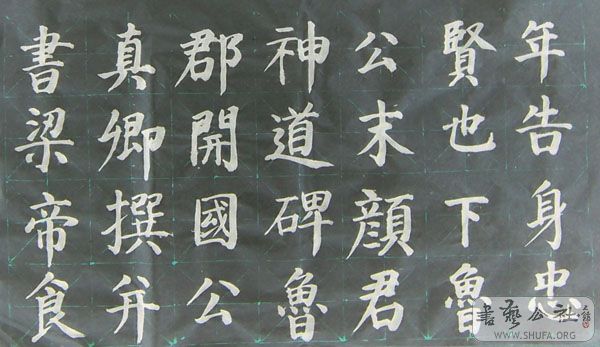 年告身忠
賢也下魯
公末顔君
神道碑魯
郡開國公
真卿撰并
書梁帝食
書藝公社
WWW.SHUFA.ORG